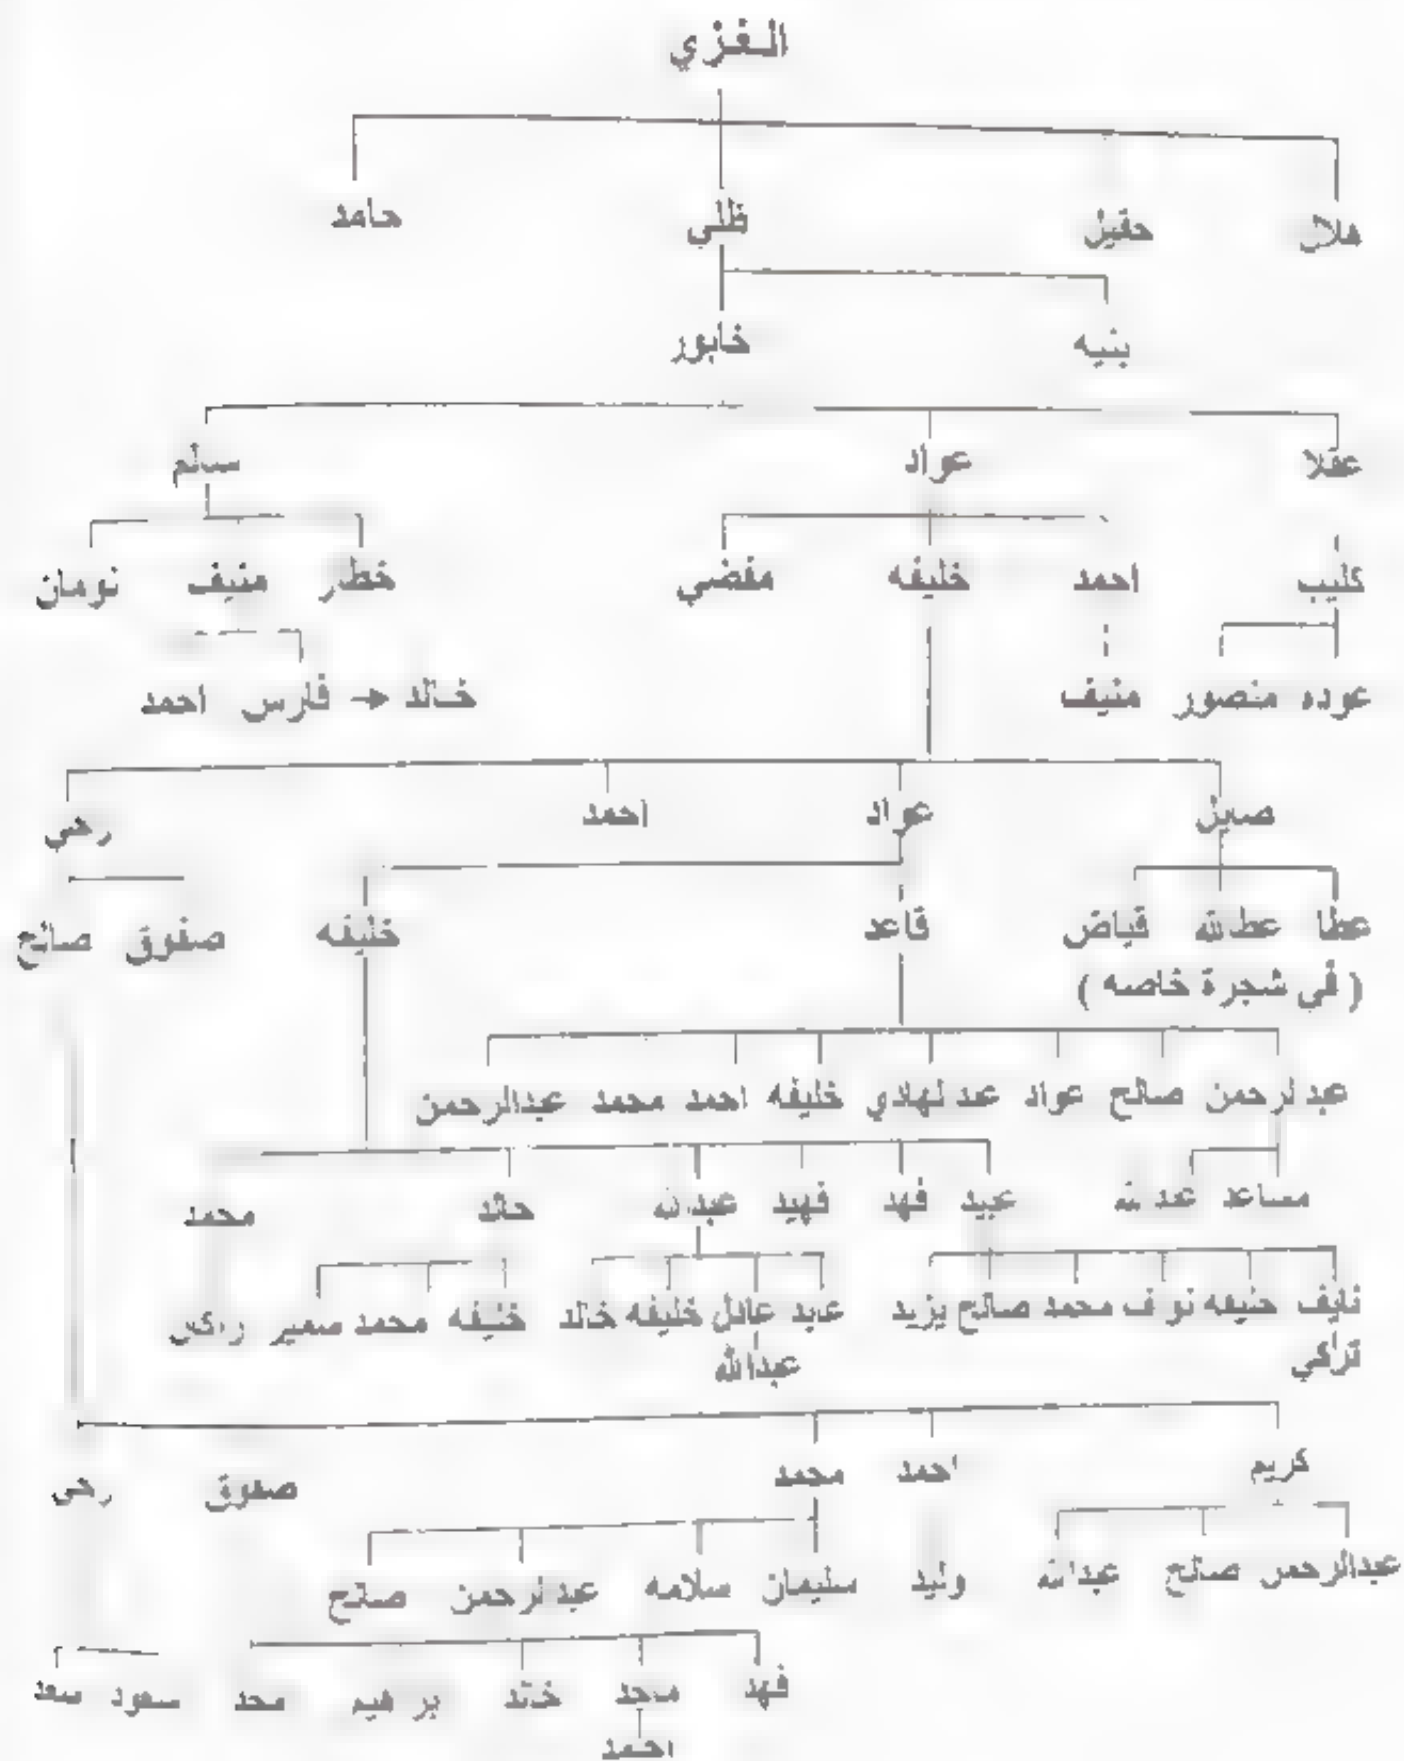 الغزي
هلال حقيل ظلي حامد
بنيه خابور
عقلا عواد سالم
كليب احمد خليفه مفضي خطار منيف نومان
عوده منصور منيف خالد → فارس احمد
صايل عواد احمد رحي
عطا عطالله قياض قاعد خليفه صفوق صالح
( في شجرة خاصه )
عبدالرحمن صالح عواد عبدالهادي خليفه احمد محمد عبدالرحمن
مساعد عبدالله عبيد فهد فهيد عبدالله خالد محمد
نايف خليفه نواف محمد صالح يزيد عابد عادل خليفه خالد خليفه محمد سمير راكان
تركي عبدالله
كريم احمد محمد صفوق رحي
عبدالرحمن صالح عبدالله وليد سليمان سلامه عبدالرحمن صالح
فهد ماجد خالد سعود سعد
احمد